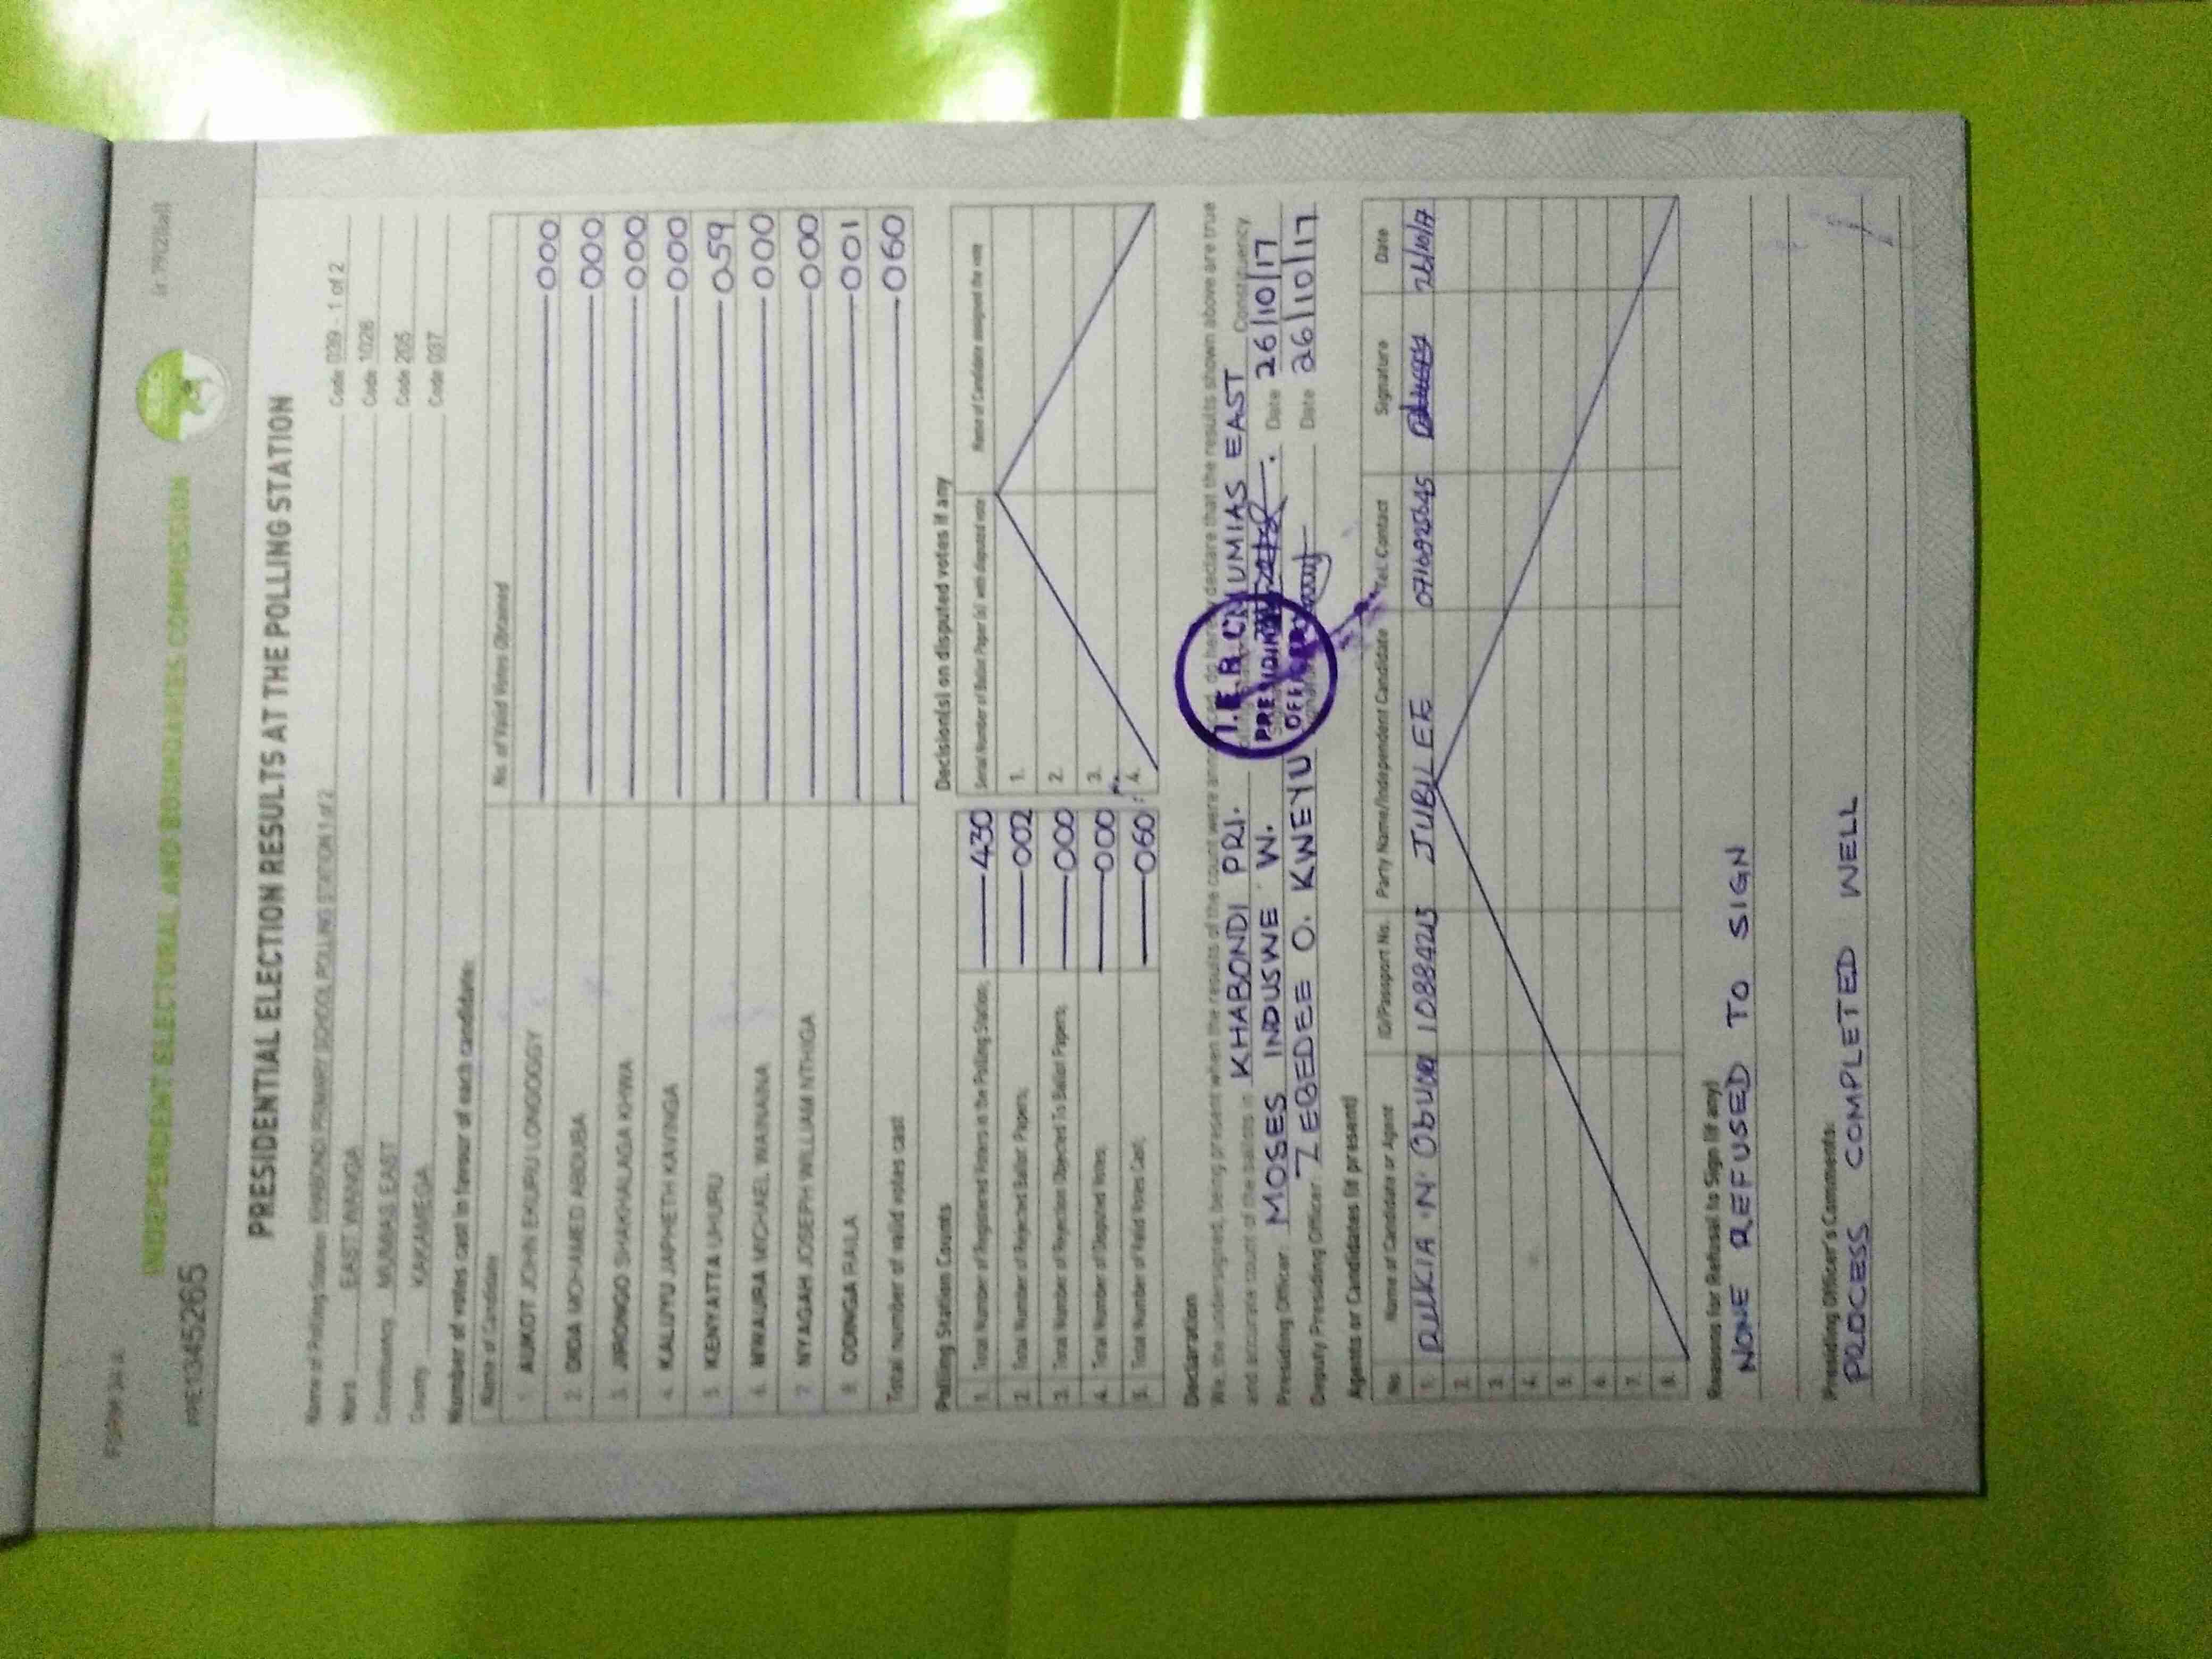 FORM 34 A
PRE1345265
INDEPENDENT ELECTORAL AND BOUNDARIES COMMISSION
PRESIDENTIAL ELECTION RESULTS AT THE POLLING STATION
Name of Polling Station KHABONDI PRIMARY SCHOOL POLLING STATION 1 of 2 Code 039 - 1 of 2
Ward EAST WANGA Code 1026
Constituency MUMIAS EAST Code 205
County KAKAMEGA Code 037
Number of votes cast in favour of each candidate:
Name of Candidate No. of Valid Votes Obtained
1 AUKOT JOHN EKURU LONGOGGY 000
2 DIDA MOHAMED ABDUBA 000
3 JIRONGO SHAKHALAGA KHWA 000
4 KALUYU JAPHETH KAVINGA 000
5 KENYATTA UHURU 059
6 MWAURA MICHAEL WAINAINA 000
7 NYAGAH JOSEPH WILLIAM NTHIGA 000
8 ODINGA RAILA 001
Total number of valid votes cast 060
Polling Station Counts
1. Total Number of Registered Voters in the Polling Station; 430
2. Total Number of Rejected Ballot Papers; 002
3. Total Number of Rejection Objected To Ballot Papers; 000
4. Total Number of Disputed Votes; 000
5. Total Number of Valid Votes Cast; 060
Decision(s) on disputed votes if any
Serial Number of Ballot Paper (s) with disputed vote Name of Candidate assigned the vote
1.
2.
3.
4.
Declaration
We, the undersigned, being present when the results of the count were announced, do hereby declare that the results shown above are true
and accurate count of the ballots in KHABONDI PRI. MUMIAS EAST Constituency
Presiding Officer MOSES INDUSWE W. Date 26/10/17
Deputy Presiding Officer ZEBEDEE O. KWEYU Date 26/10/17
I.E.B.C
PRESIDING
OFFICER
Agents or Candidates (if present)
No. Name of Candidate or Agent ID/Passport No. Party Name/Independent Candidate Tel. Contact Signature Date
1. N. JUBLEE 26/10/17
2.
3.
4.
5.
6.
7.
8.
Reasons for Refusal to Sign (if any)
NONE REFUSED TO SIGN
Presiding Officer's Comments:
PROCESS COMPLETED WELL